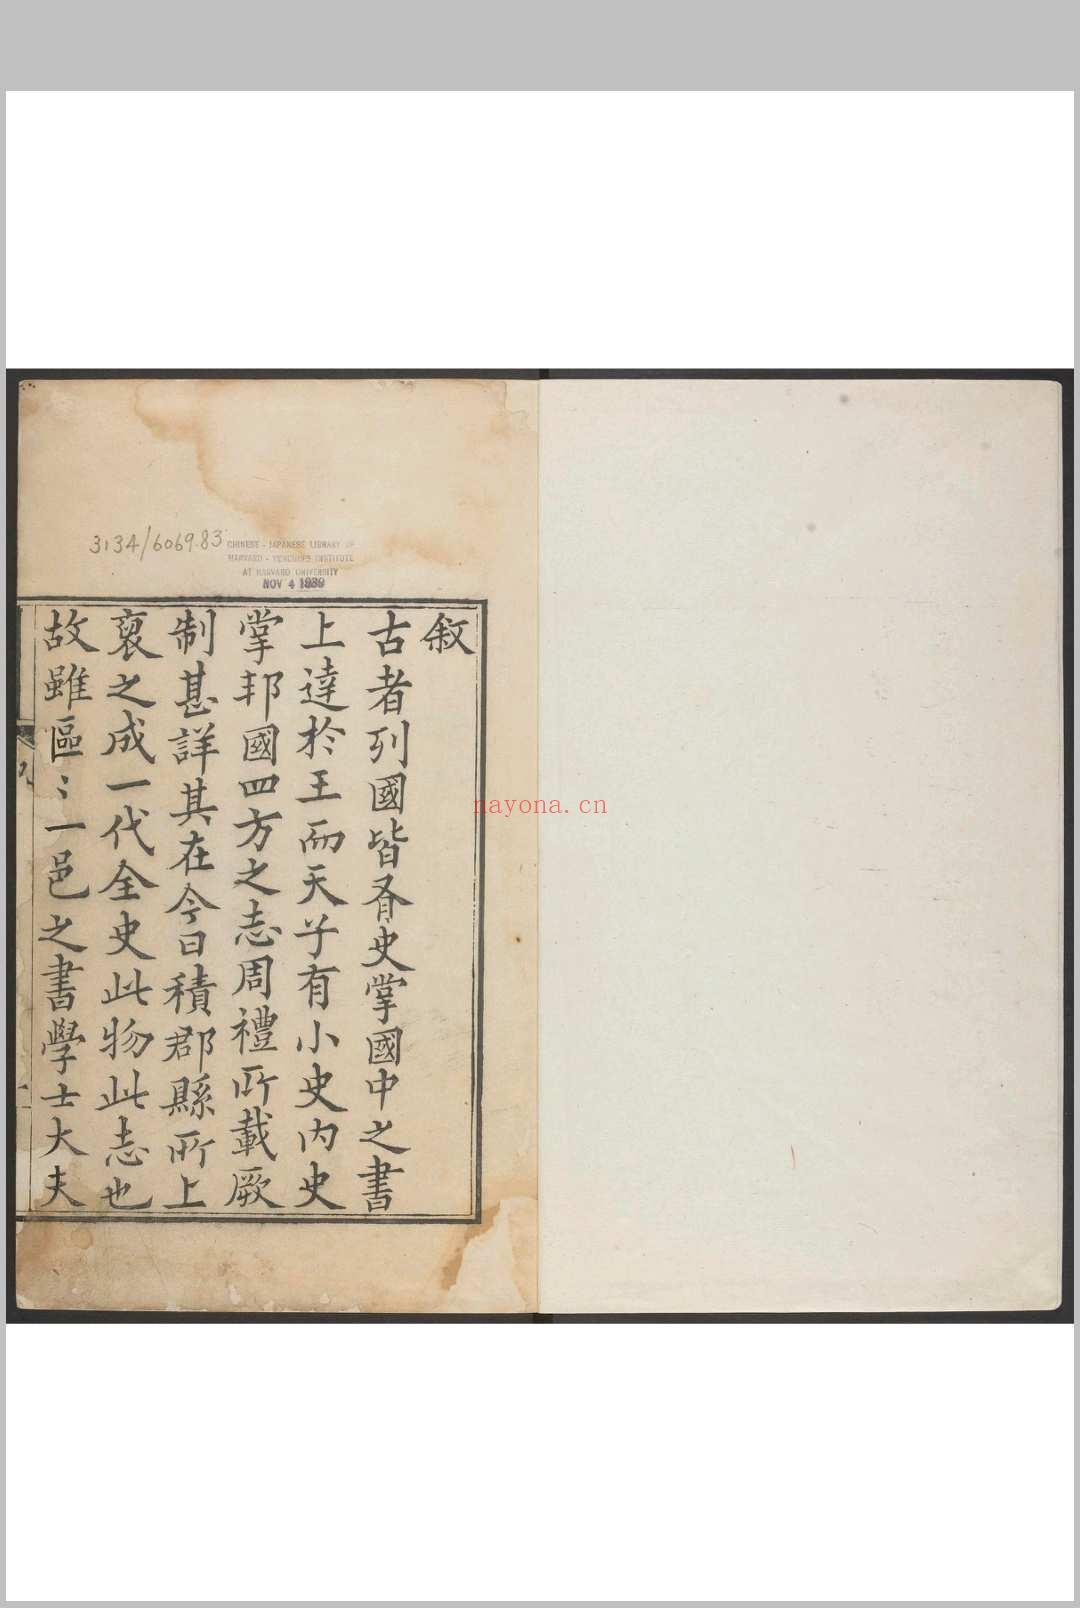 3134/6069.83
CHINESE - JAPANESE LIBRARY OF
HARVARD - YENCHING INSTITUTE
AT HARVARD UNIVERSITY
NOV 4 1939
叙
古者列國皆有史掌國中之書
上達於王而天子有小史内史
掌邦國四方之志周禮所載厥
制甚詳其在今日積郡縣所上
裒之成一代全史此物此志也
故雖區〻一邑之書學士大夫
nayona.cn